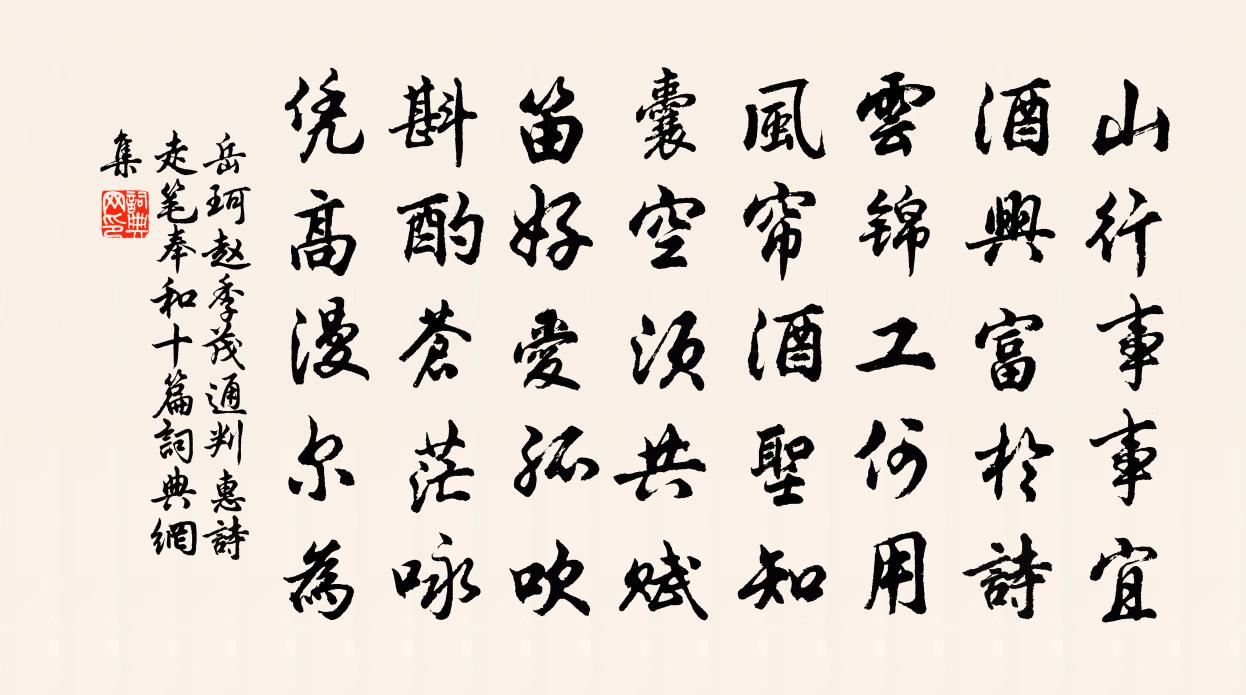 山行事事宜
酒興富於詩
雲錦工何用
風帘酒聖知
囊空須共賦
笛好愛孤吹
斟酌蒼茫咏
凭高漫尔為
岳珂赵季茂通判惠詩
走笔奉和十篇詞典網
集
詞典網印